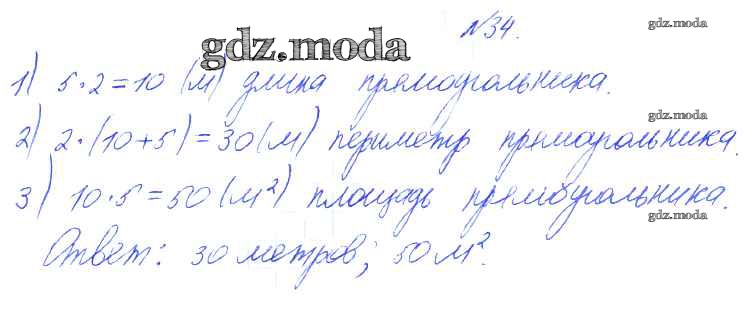 №34.
gdz.moda
gdz.moda
1) 5·2=10 (м) длина прямоугольника.
gdz.moda
2) 2·(10+5)=30(м) периметр прямоугольника.
3) 10·5=50(м²) площадь прямоугольника.
gdz.moda
Ответ: 30 метров; 50 м².